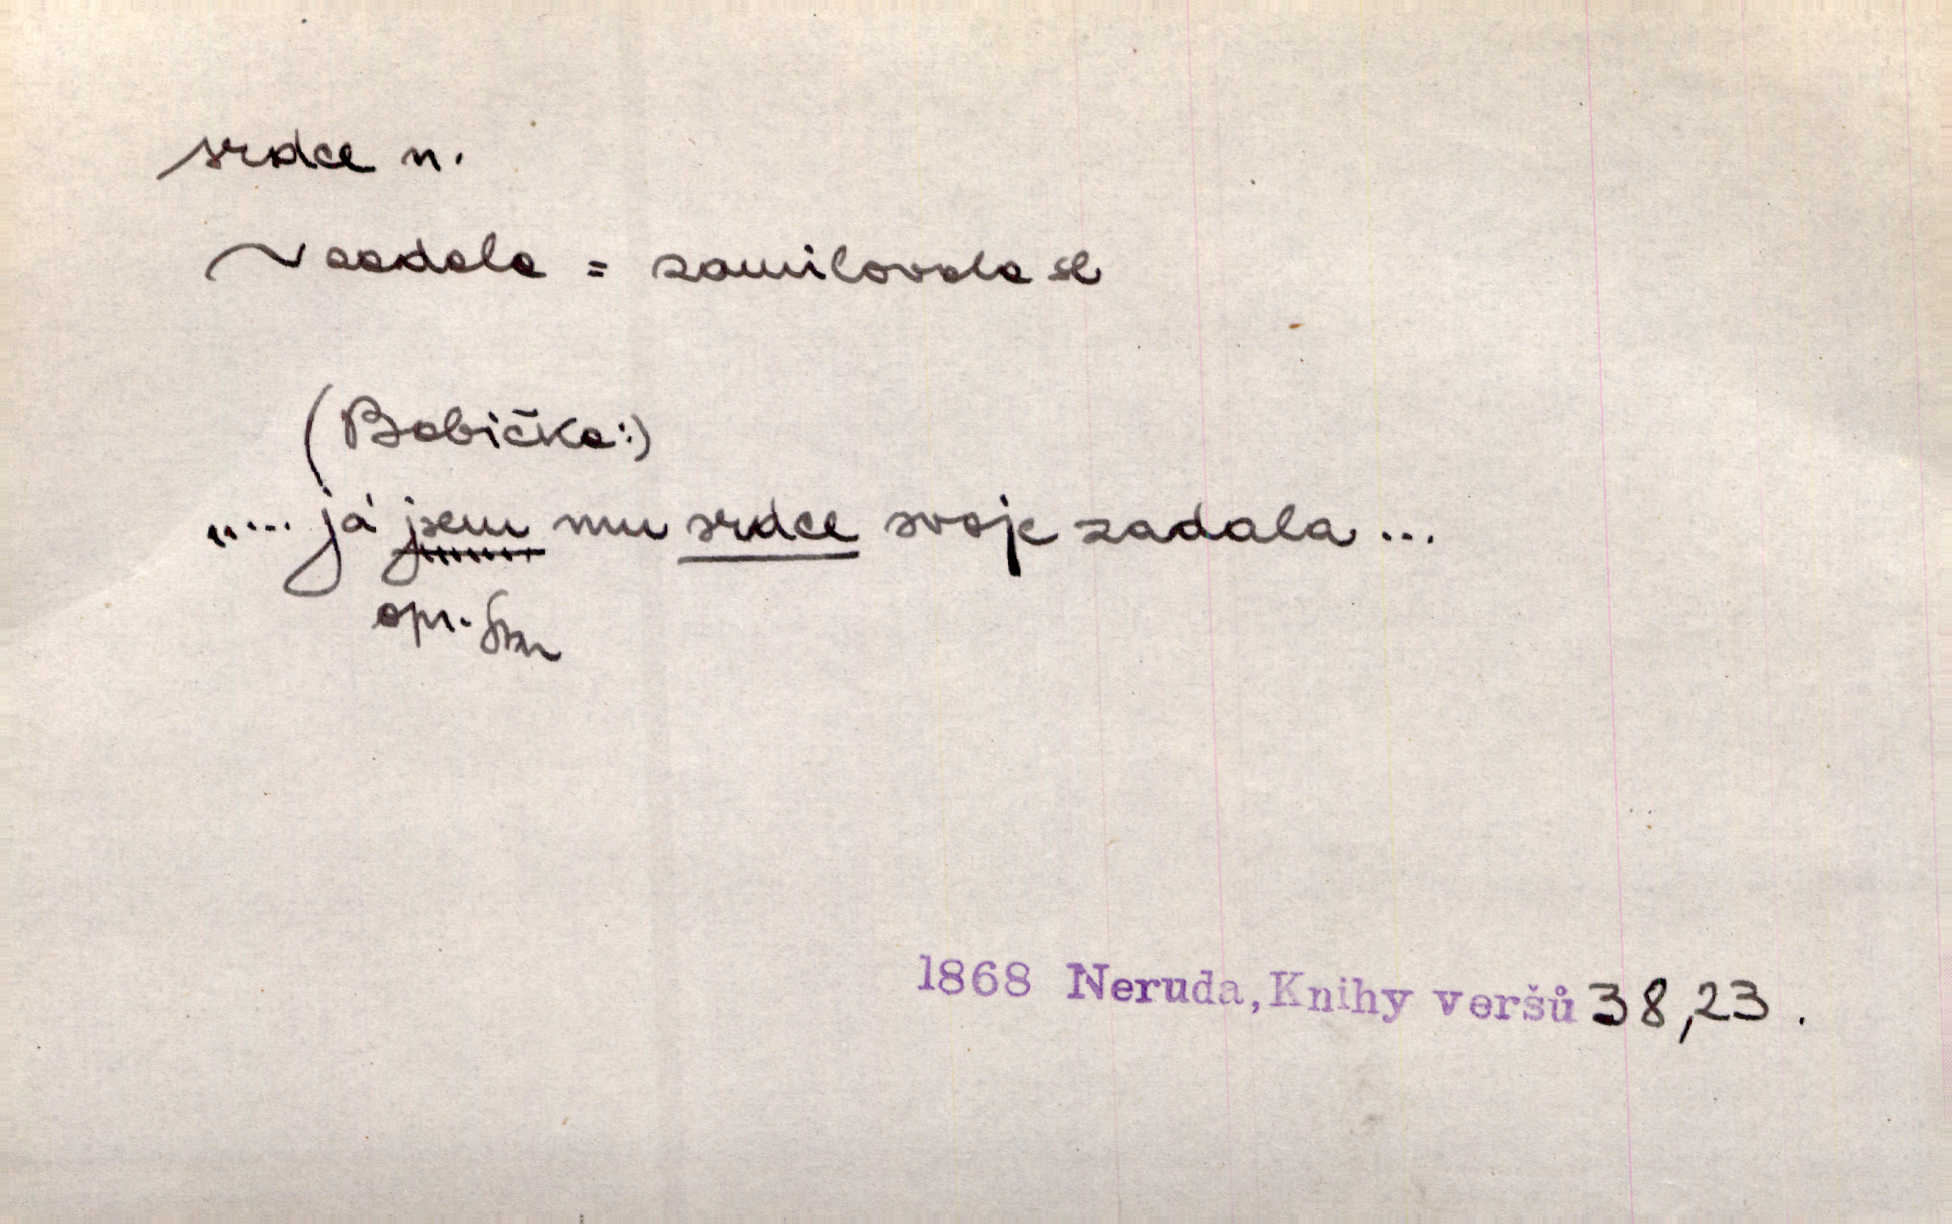 srdce n.
~ zadala = zamilovala se
(Babička:)
„... já jsem mu srdce svoje zadala ...
opr.
1868 Neruda, Knihy veršů 38,23.